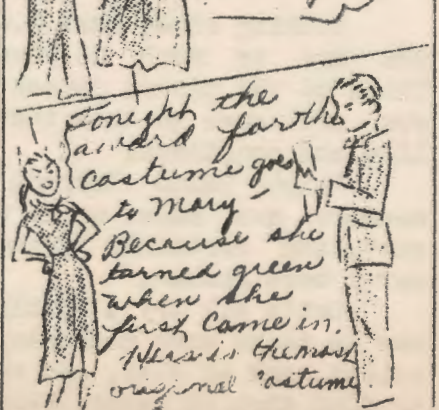 Tonight the
award for the
costume goes
to Mary -
Because she
turned green
when she
first came in.
Hers is the most
original costume